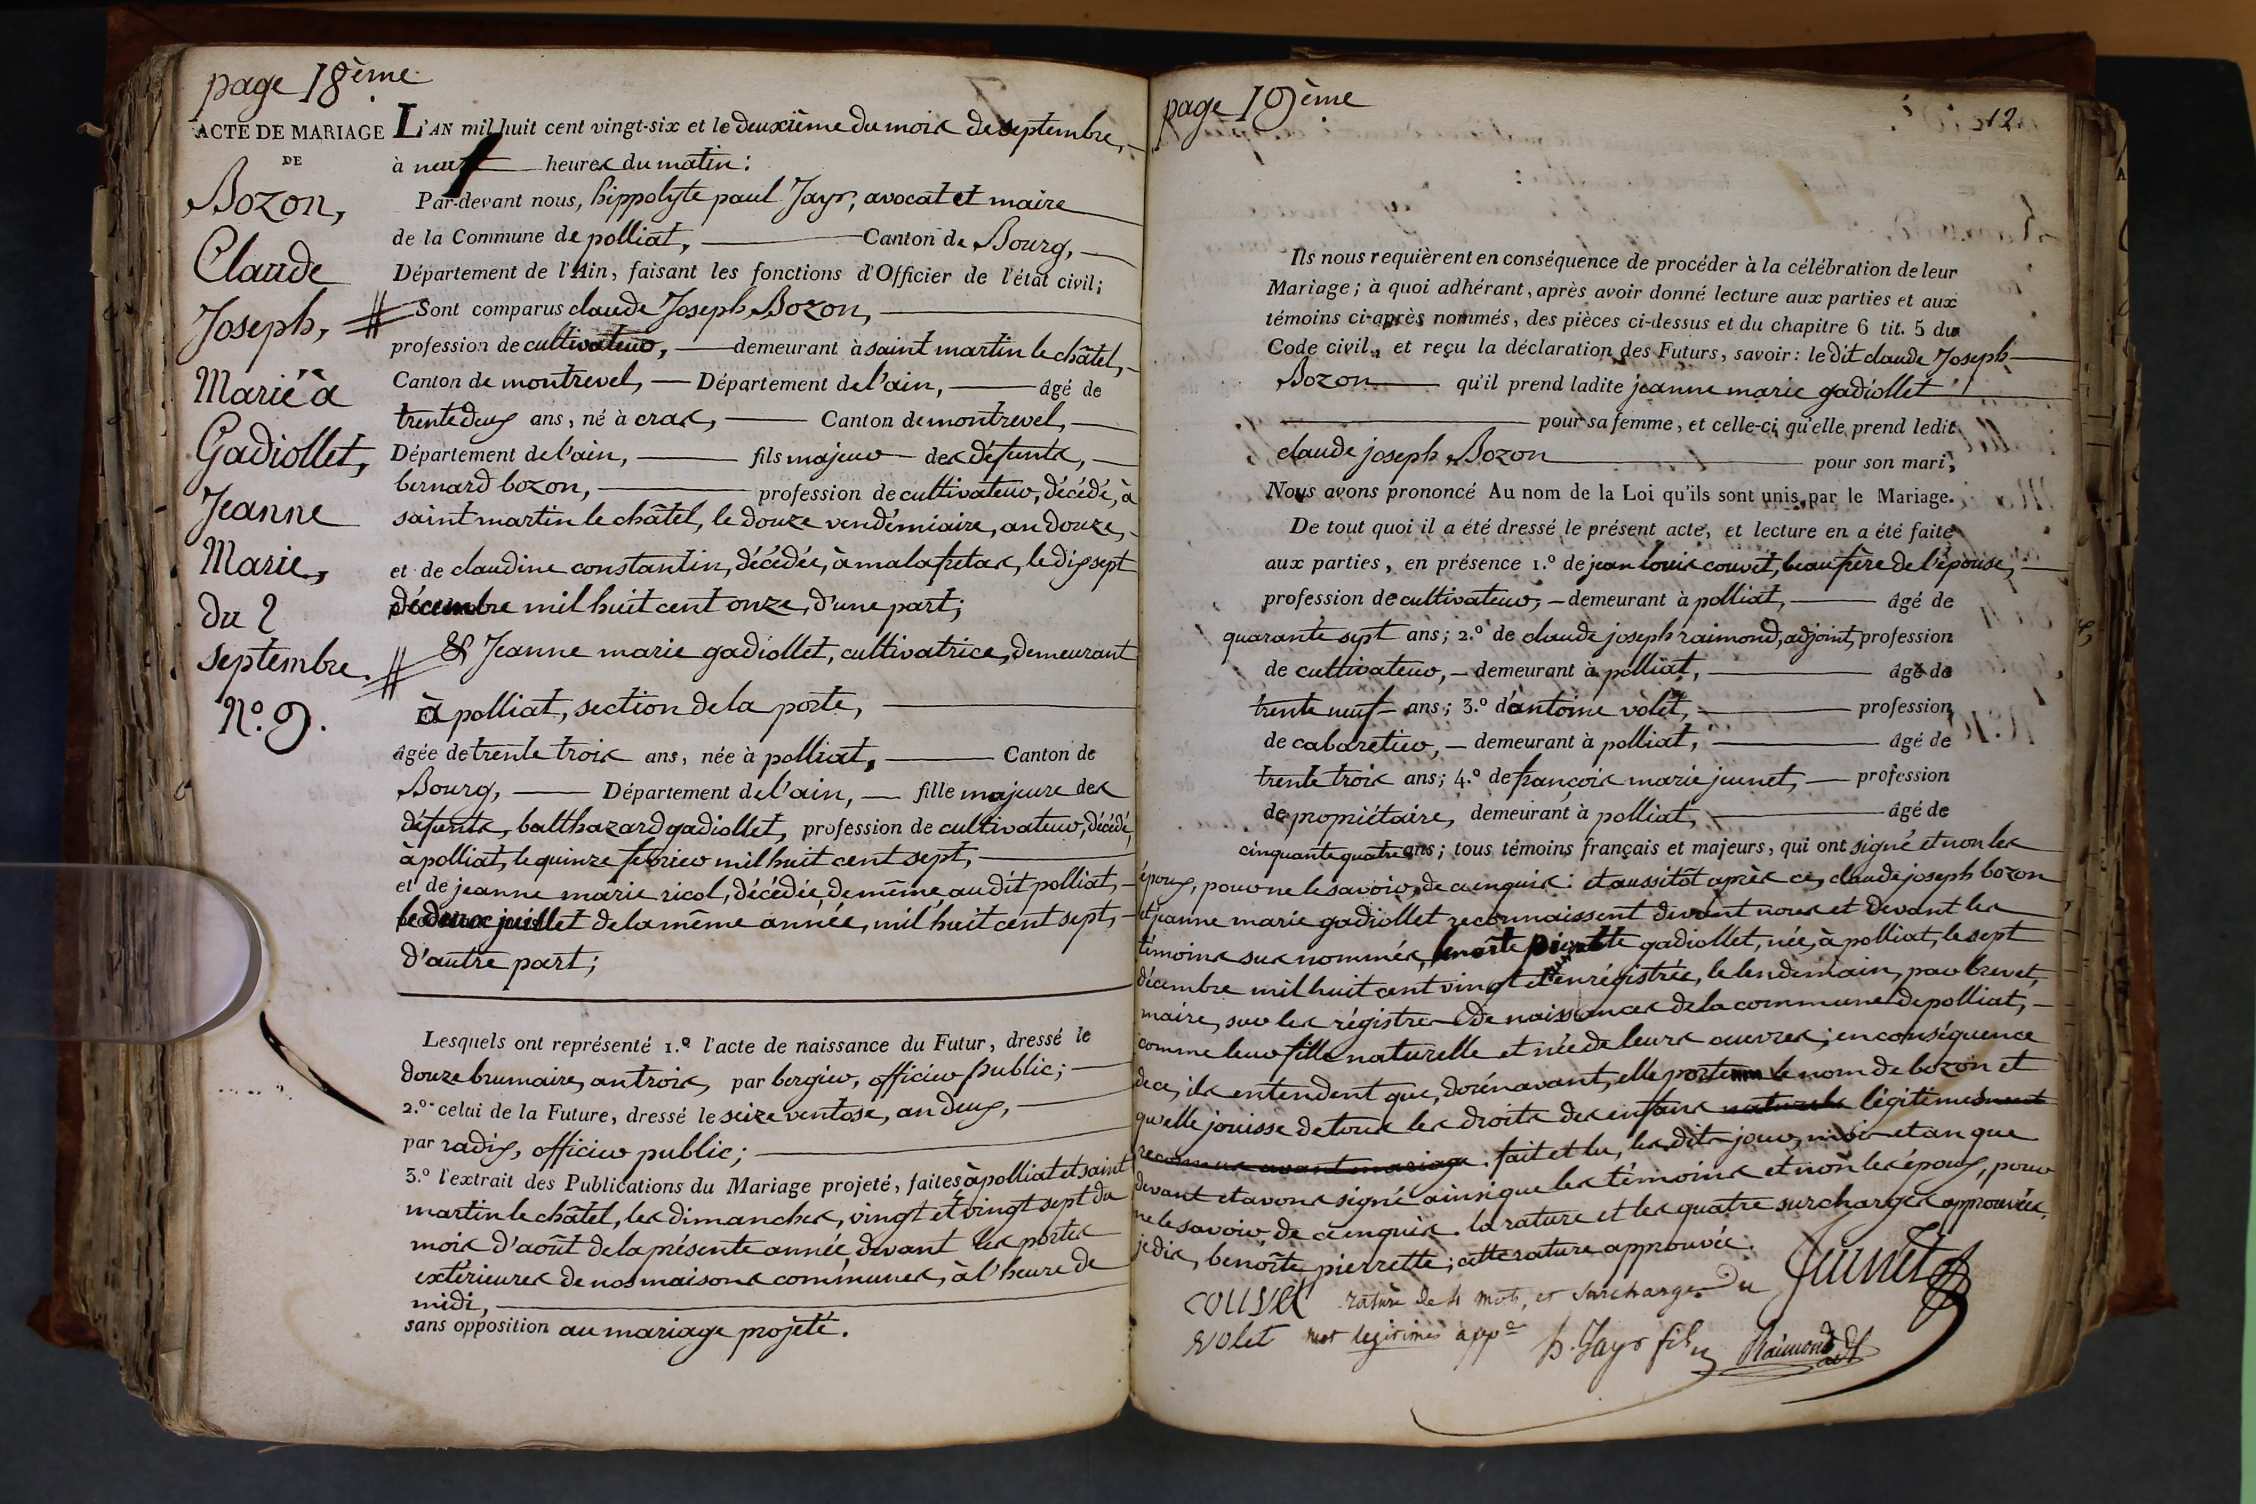 page 18ème.
ACTE DE MARIAGE
DE
Bozon,
Claude
Joseph,
Marié à
Gadiollet,
Jeanne
Marie,
du 2
septembre.
N.o 9.
L'AN mil huit cent vingt-six et le deuxième du mois de septembre,
à neuf heures du matin:
Par-devant nous, hippolyte paul Jayr, avocat et maire
de la Commune de polliat, Canton de Bourg,
Département de l'Ain, faisant les fonctions d'Officier de l'état civil;
Sont comparus claude Joseph Bozon,
profession de cultivateur, demeurant à saint martin le châtel,
Canton de montrevel, Département de l'ain, âgé de
trente deux ans, né à cras, Canton de montrevel,
Département de l'ain, fils majeur des défunts,
bernard bozon, profession de cultivateur, décédé, à
saint martin le châtel, le douze vendémiaire, an douze,
et de claudine constantin, décédée, à malafretas, le dix sept
décembre mil huit cent onze, d'une part;
& Jeanne marie gadiollet, cultivatrice, demeurant
à polliat, section de la porte,
âgée de trente trois ans, née à polliat, Canton de
Bourg, Département de l'ain, fille majeure des
défunts, balthazard gadiollet, profession de cultivateur, décédé,
à polliat, le quinze février mil huit cent sept,
et de jeanne marie ricol, décédée, de même, au dit polliat,
le douze juillet de la même année, mil huit cent sept,
d'autre part;
Lesquels ont représenté 1.o l'acte de naissance du Futur, dressé le
douze brumaire, an trois, par bergier, officier public;
2.o celui de la Future, dressé le seize ventose, an deux,
par radix, officier public;
3.o l'extrait des Publications du Mariage projeté, faites à polliat et saint
martin le châtel, les dimanches, vingt et vingt sept du
mois d'août de la présente année, devant les portes
extérieures de nos maisons communes, à l'heure de
midi,
sans opposition au mariage projeté.
page 19ème
12
Ils nous requièrent en conséquence de procéder à la célébration de leur
Mariage; à quoi adhérant, après avoir donné lecture aux parties et aux
témoins ci-après nommés, des pièces ci-dessus et du chapitre 6 tit. 5 du
Code civil, et reçu la déclaration des Futurs, savoir: le dit claude Joseph
Bozon qu'il prend ladite jeanne marie gadiollet
pour sa femme, et celle-ci qu'elle prend ledit
claude joseph Bozon pour son mari;
Nous avons prononcé Au nom de la Loi qu'ils sont unis par le Mariage.
De tout quoi il a été dressé le présent acte, et lecture en a été faite
aux parties, en présence 1.o de jean louis couvet, beau frère de l'épouse,
profession de cultivateur, demeurant à polliat, âgé de
quarante sept ans; 2.o de claude joseph raimond, adjoint, profession
de cultivateur, demeurant à polliat, âgé de
trente neuf ans; 3.o d'antoine volet, profession
de cabaretier, demeurant à polliat, âgé de
trente trois ans; 4.o de françois marie juenet, profession
de propriétaire, demeurant à polliat, âgé de
cinquante quatre ans; tous témoins français et majeurs, qui ont signé et non les
époux, pour ne le savoir, de ce enquis: et aussitôt après ce, claude joseph bozon
et jeanne marie gadiollet reconnaissent devant nous et devant les
témoins sus nommés, benoîte pierrette gadiollet, née, à polliat, le sept
décembre mil huit cent vingt et enrégistrée, le lendemain, par brevet,
maire, sur les régistres de naissances de la commune de polliat,
comme leur fille naturelle et née de leurs œuvres; en conséquence
de ce, ils entendent que, dorénavant, elle porte le nom de bozon et
qu'elle jouisse de tous les droits des enfans naturels légitimes
reconnus avant mariage. fait et lu, les dits jour, mois et an que
devant et avons signé ainsi que les témoins et non les époux, pour
ne le savoir, de ce enquis. la rature et les quatre surcharges approuvées.
je dis, benoîte pierrette; cette rature approuvée.
couvet rature de 4 mots, et surcharge du Juenet
volet mot legitimes app.é h. Jayr fils Raimond adjt